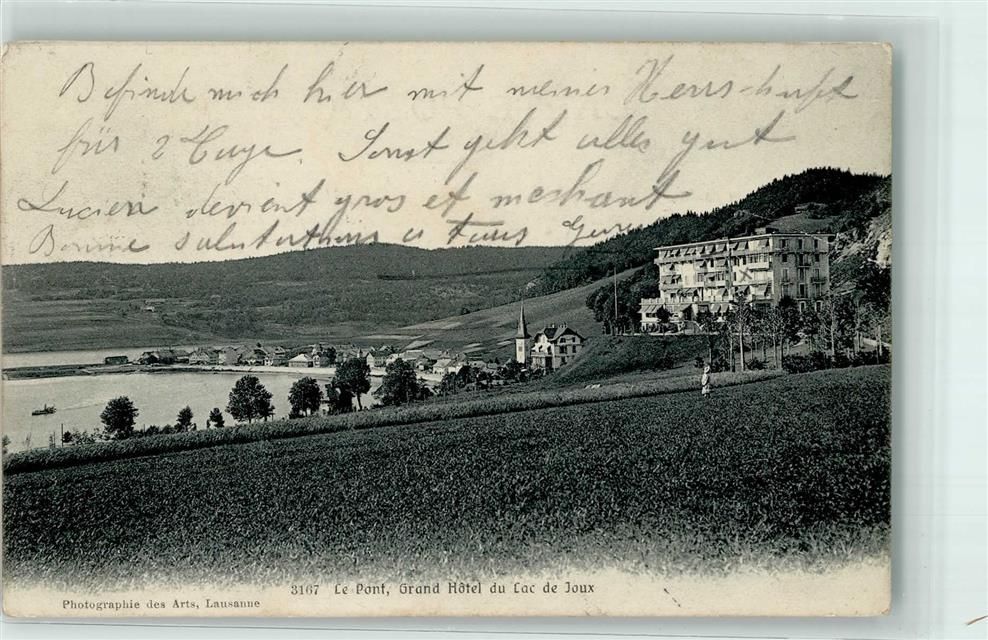 Befinde mich hier mit meiner Herrschaft
für 2 Tage. Sonst geht alles gut
Lucien devient gros et meshant
Bonne salutations a tous
3167 Le Pont, Grand Hôtel du Lac de Joux
Photographie des Arts, Lausanne